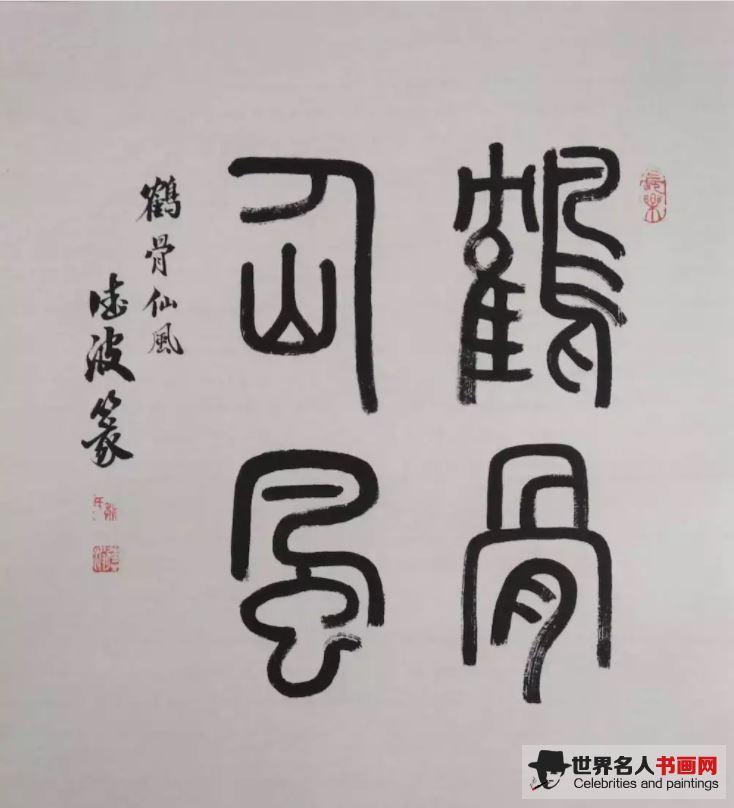 鶴骨
仙風
鶴骨仙風
波篆
世界名人书画网
Celebrities and paintings